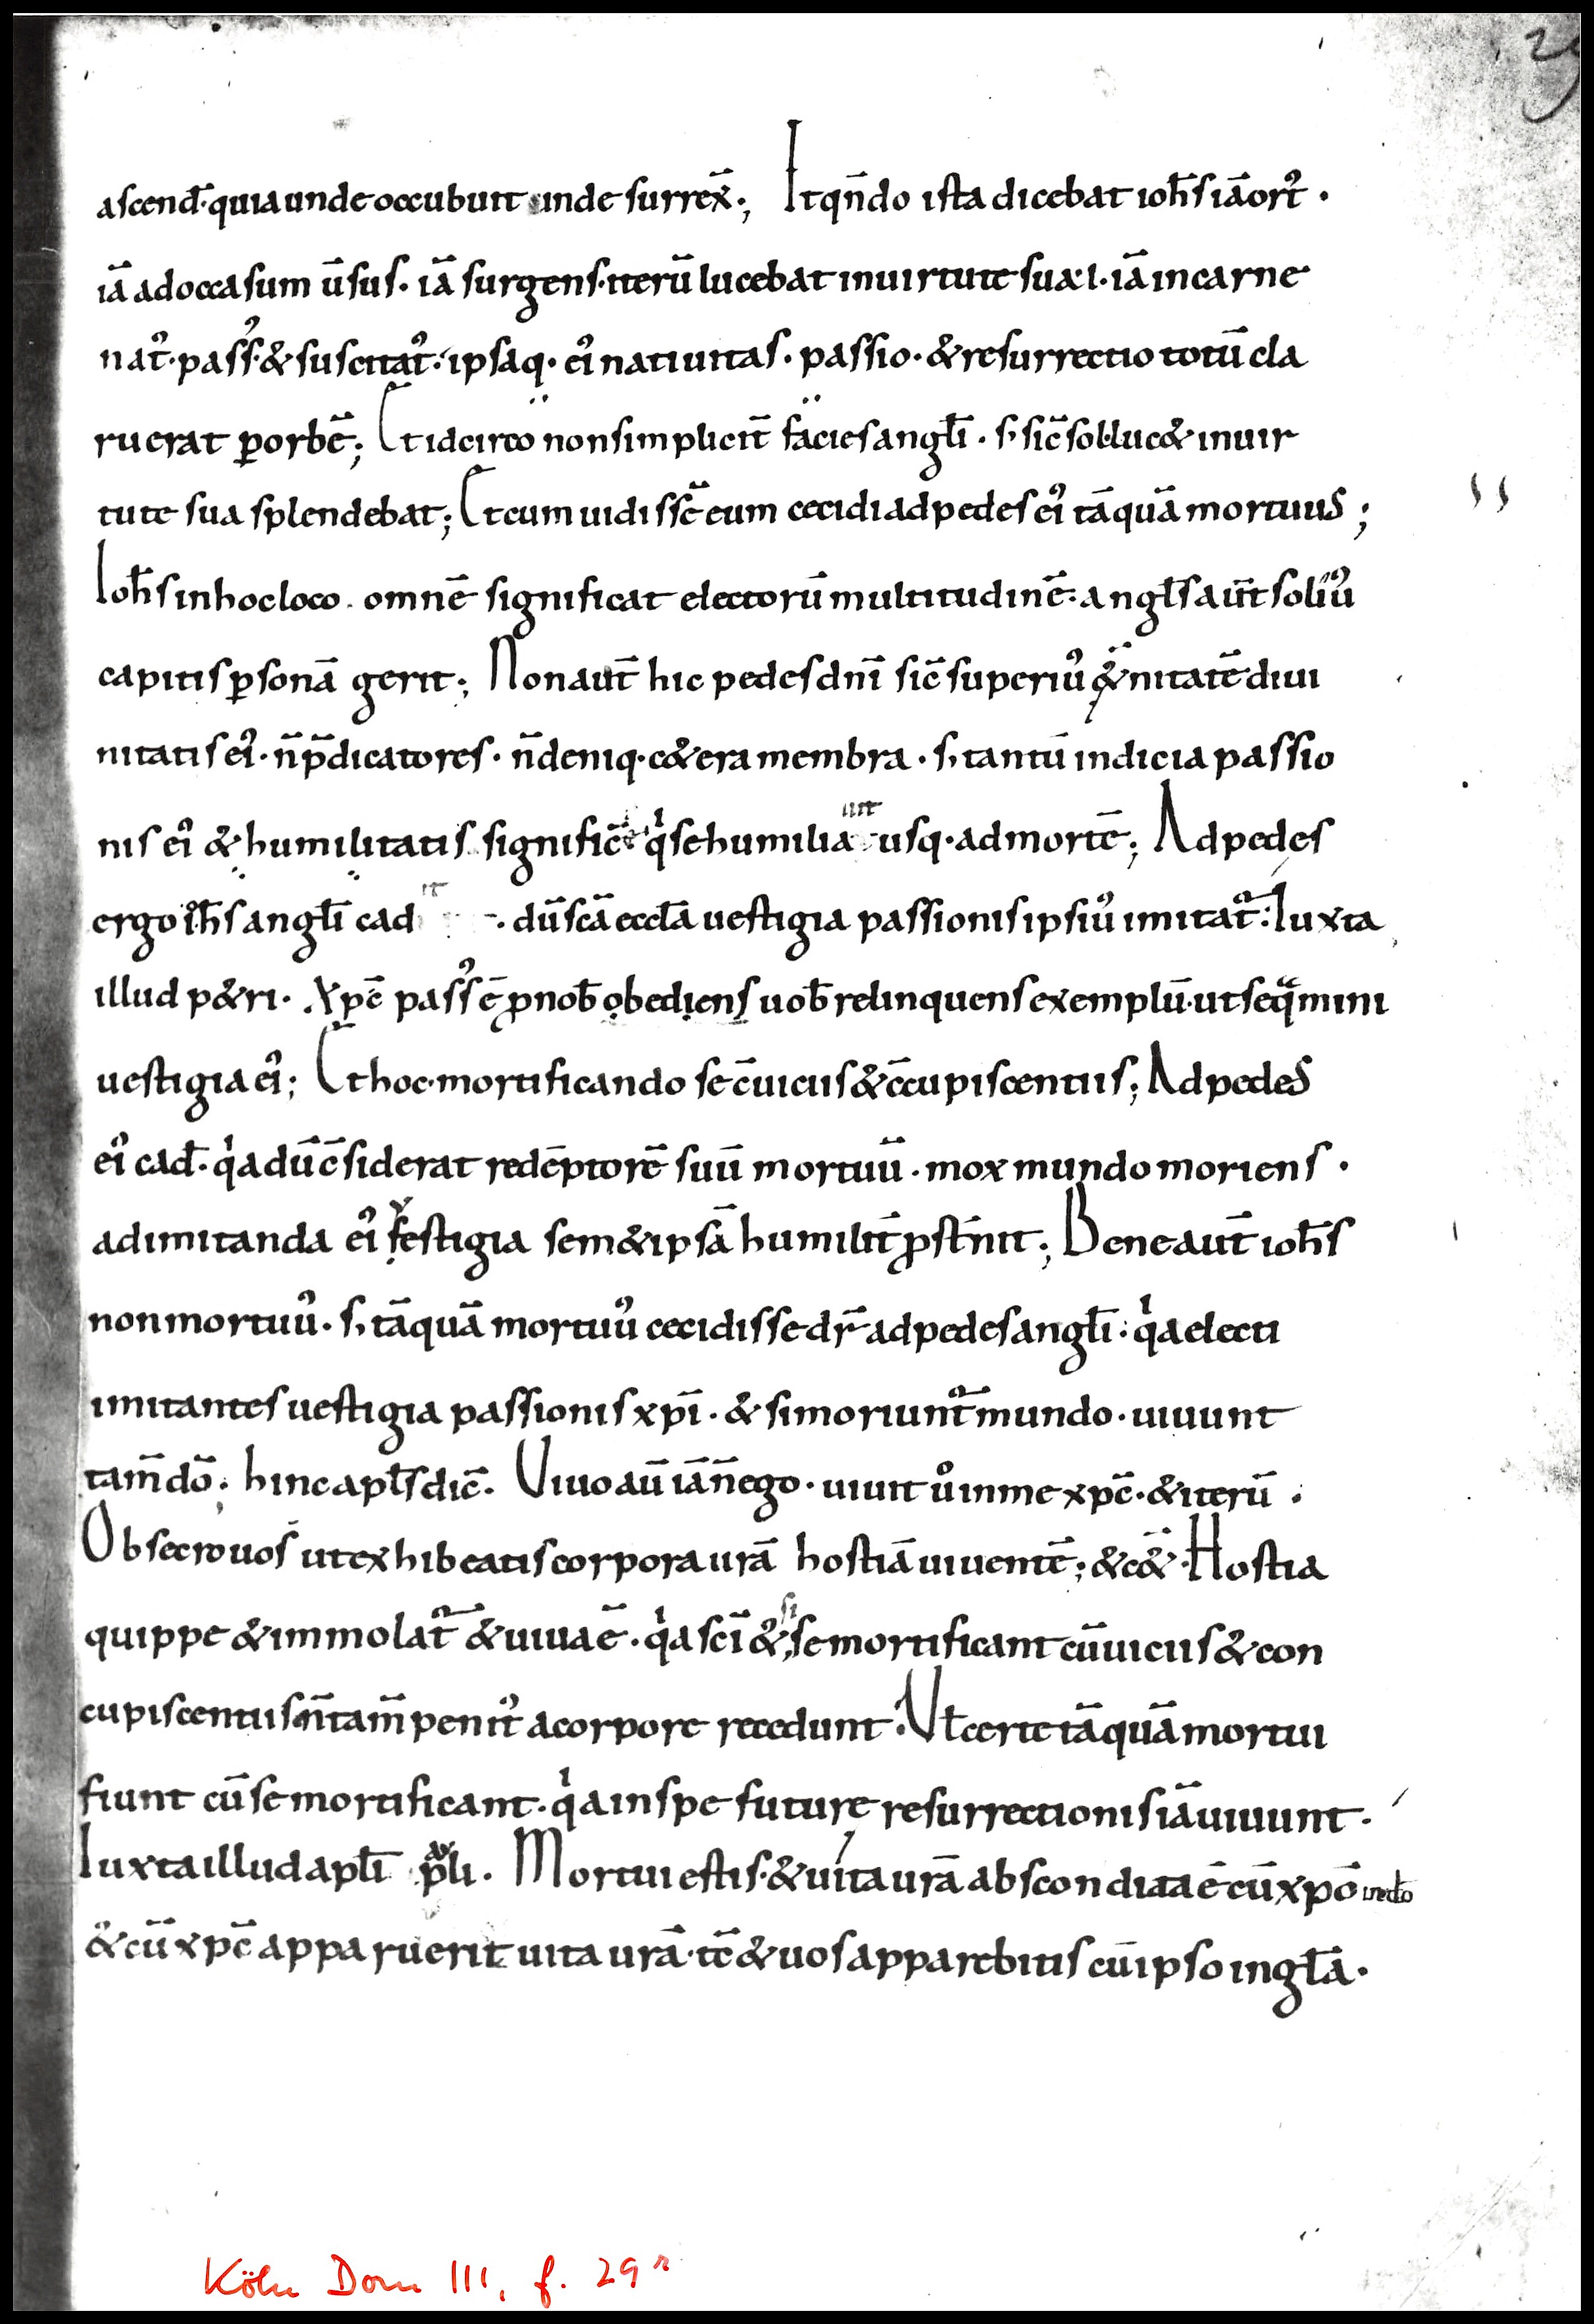 29
ascend̄· quia unde occubuit unde surrex̄·; Et qn̄do ista dicebat ioh̄s iā ort᾽·
iā ad occasum ūsus· iā surgens· iterū lucebat in uirtute sua· ł· iā in carne
nat᾽· pass᾽· & suscitat᾽· ipsaq· ei᾽ natiuitas· passio· & resurrectio totū cla
ruerat ꝑ orbē; Et idcirco non simplicit̄ facies angl̄i· s; sic̄ sol luc& in uir
tute sua splendebat; Et cum uidissē eum cecidi ad pedes ei᾽ tāquā mortuus;
Ioh̄s in hoc loco· omnē significat electorū multitudinē· angl̄s aut̄ soliu᾽
capitis ꝑsonā gerit; Non aut̄ hic pedes dn̄i sic̄ superiu᾽ &nitatē diui
nitatis ei᾽· n̄ p̄dicatores· n̄ deniq· c&era membra· s; tantū indicia passio
nis ei᾽ & humilitatis significā qͥ se humilia uit usq· ad mortē; Ad pedes
ergo ioh̄s angl̄i cad it · dū sc̄a eccl̄a uestigia passionis ipsiu᾽ imitat᾽· Iuxta
illud p&ri· Xp̄c pass᾽ ē ꝓ nob̄ obediens uob̄ relinquens exemplū· ut seq̄mini
uestigia ei᾽; Et hoc· mortificando se c̄ uiciis & c̄cupiscentiis; Ad pedes
ei᾽ cad̄· qͥa dū c̄siderat redēptorē suū mortuū· mox mundo moriens·
ad imitanda ei᾽ festigia sem&ipsā humilit̄ ꝓst̄nit; Bene aut̄ ioh̄s
non mortuu᾽· s; tāquā mortuu᾽ cecidisse dr̄ ad pedes angl̄i· qͥa electi
imitantes uestigia passionis xp̄i· & si moriunt᾽ mundo· uiuunt
tam̄ dō· hinc apl̄s dic̄· Viuo aū iā n̄ ego· uiuit uͦ in me xp̄c· & iterū·
Obsecro uos ut exhibeatis corpora ur̄a hostiā uiuentē; & c&· Hostia
quippe & immolat᾽ & uiua ē· qͥa sc̄i & si se mortificant cū uiciis & con
cupiscentiis n̄ tam̄ penit᾽ a corpore recedunt· Vł certe tāquā mortui
fiunt cū se mortificant· qͥa in spe future resurrectionis iā uiuunt·
Iuxta illud apl̄i pauli· Mortui estis· & uita ur̄a abscondita ē cū xp̄o in dō
& cū xp̄c apparuerit uita ur̄a· tc̄ & uos apparebitis cū ipso in gl̄a·
Köln Dom III, f. 29ʳ